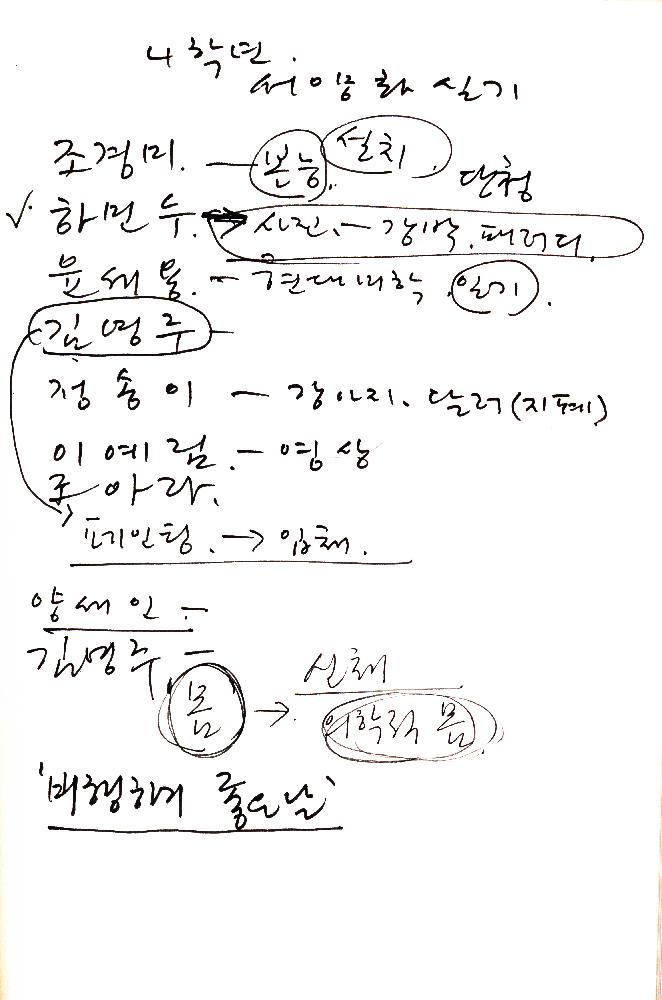 4학년.
서양화 실기
조경미. — 본능. 설치.
단청
✓. 하민수. → 사진. — 강박. 패러디.
윤세용. — 현대미학. 일기.
김영주 —
정송이 — 강아지. 달러(지폐)
이예림. — 영상
조아라.
페인팅. → 입체.
양세인. —
김영주 —
몸 → 신체
의학적 몸.
'비행하기 좋은날'